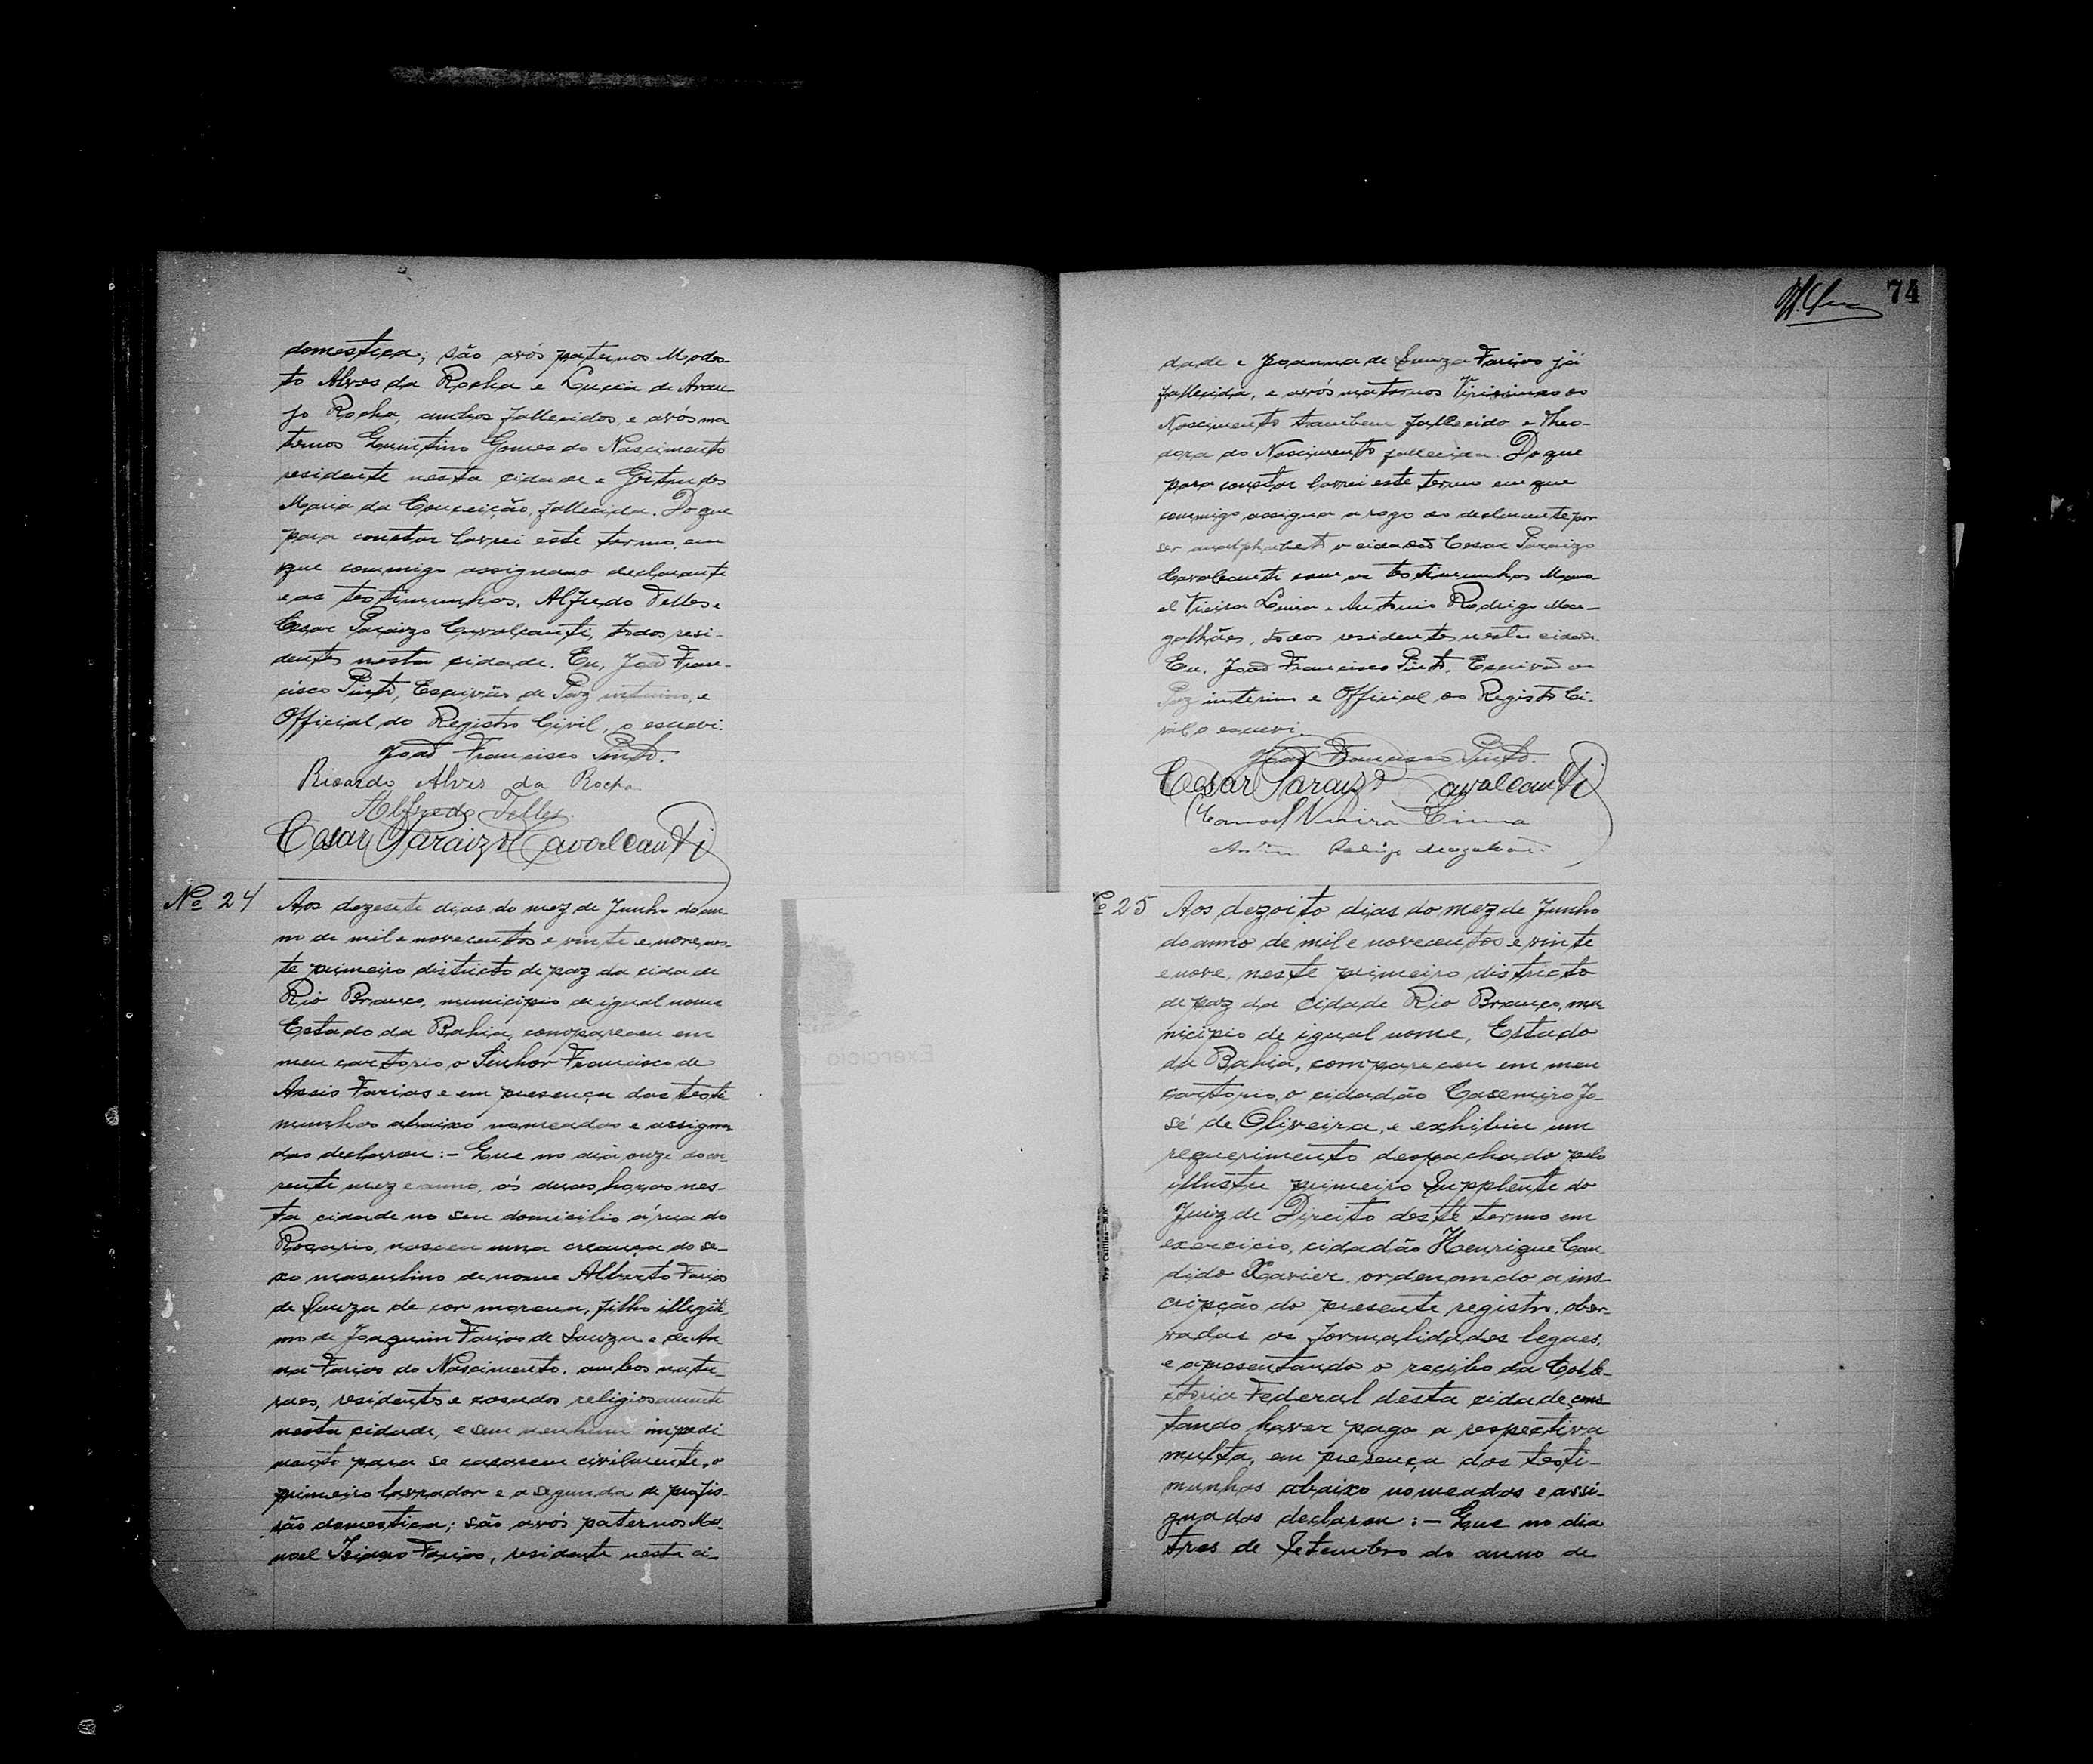 domestica; são avós paternos Modes-
to Alves da Rocha e Lucia de Arau-
jo Rocha, ambos fallecidos, e avós ma
ternos Quintino Gomes do Nascimento
residente nesta cidade e Gertrudes
Maria da Conceição, fallecida. Do que
para constar lavrei este termo, em
que commigo assignam o declarante
e as testimunhas, Alfredo Telles e
Cesar Paraizo Cavalcanti, todos resi-
dentes nesta cidade. Eu, João Fran-
cisco Pinto, Escrivão de Paz interino, e
Official do Registro Civil, o escrevi.
João Francisco Pinto.
Ricardo Alves da Rocha
Alfredo Telles.
Cesar Paraizo Cavalcanti
Nº 24
Aos dezesete dias do mez de Junho do an-
no de mil e novecentos e vinte e nove, nes-
te primeiro districto de paz da cidade
Rio Branco, municipio de igual nome
Estado da Bahia, compareceu em
meu cartorio o Senhor Francisco de
Assis Farias e em presença das testi
munhas abaixo nomeadas e assigna
das declarou:- Que no dia onze do cor
rente mez e anno, ás duas horas nes-
ta cidade no seu domicilio á rua do
Rosario, nasceu uma creança do se-
xo masculino de nome Alberto Farias
de Souza de cor morena, filho illegiti
mo de Joaquim Farias de Souza e de An
na Farias do Nascimento, ambos natu-
raes, residentes e casados religiosamente
nesta cidade, e sem nenhum impedi
mento para se casarem civilmente, o
primeiro lavrador e a segunda de profis-
são domestica; são avós paternos Ma-
noel Farias, residente nesta ci-
74
dade e Joanna de Souza Farias já
fallecida, e avós maternos do
Nascimento tambem fallecido e Theo-
dora do Nascimento fallecida. Do que
para constar lavrei este termo em que
commigo assigna a rogo do declarante por
ser analphabeto o cidadão Cesar Paraizo
Cavalcanti com as testimunhas Mano-
el Vieira Lima e Antonio Rodrigo Ma-
galhães, todos residentes nesta cidade.
Eu, João Francisco Pinto, Escrivão de
Paz interino e Official do Registo Ci-
vil, o escrevi.
João Francisco Pinto.
Cesar Paraizo Cavalcanti
Manoel Vieira Lima
Antonio Rodrigo Magalhães
Nº 25
Aos dezoito dias do mez de Junho
do anno de mil e novecentos e vinte
e nove, neste primeiro districto
de paz da cidade Rio Branco, mu-
nicipio de igual nome, Estado
da Bahia, compareceu em meu
cartorio, o cidadão Casemiro Jo-
sé de Oliveira, e exhibiu um
requerimento despachado pelo
illustre primeiro Supplente do
Juiz de Direito deste termo em
exercicio, cidadão Henrique Can
dido Xavier, ordenando a ins
cripção do presente registro, obser-
vadas as formalidades legaes,
e apresentando o recibo da Colle-
ctoria Federal desta cidade, cons
tando haver pago a respectiva
multa, em presença das testi-
munhas abaixo nomeadas e assi-
gnadas declarou:- Que no dia
tres de Setembro do anno de
Exercicio